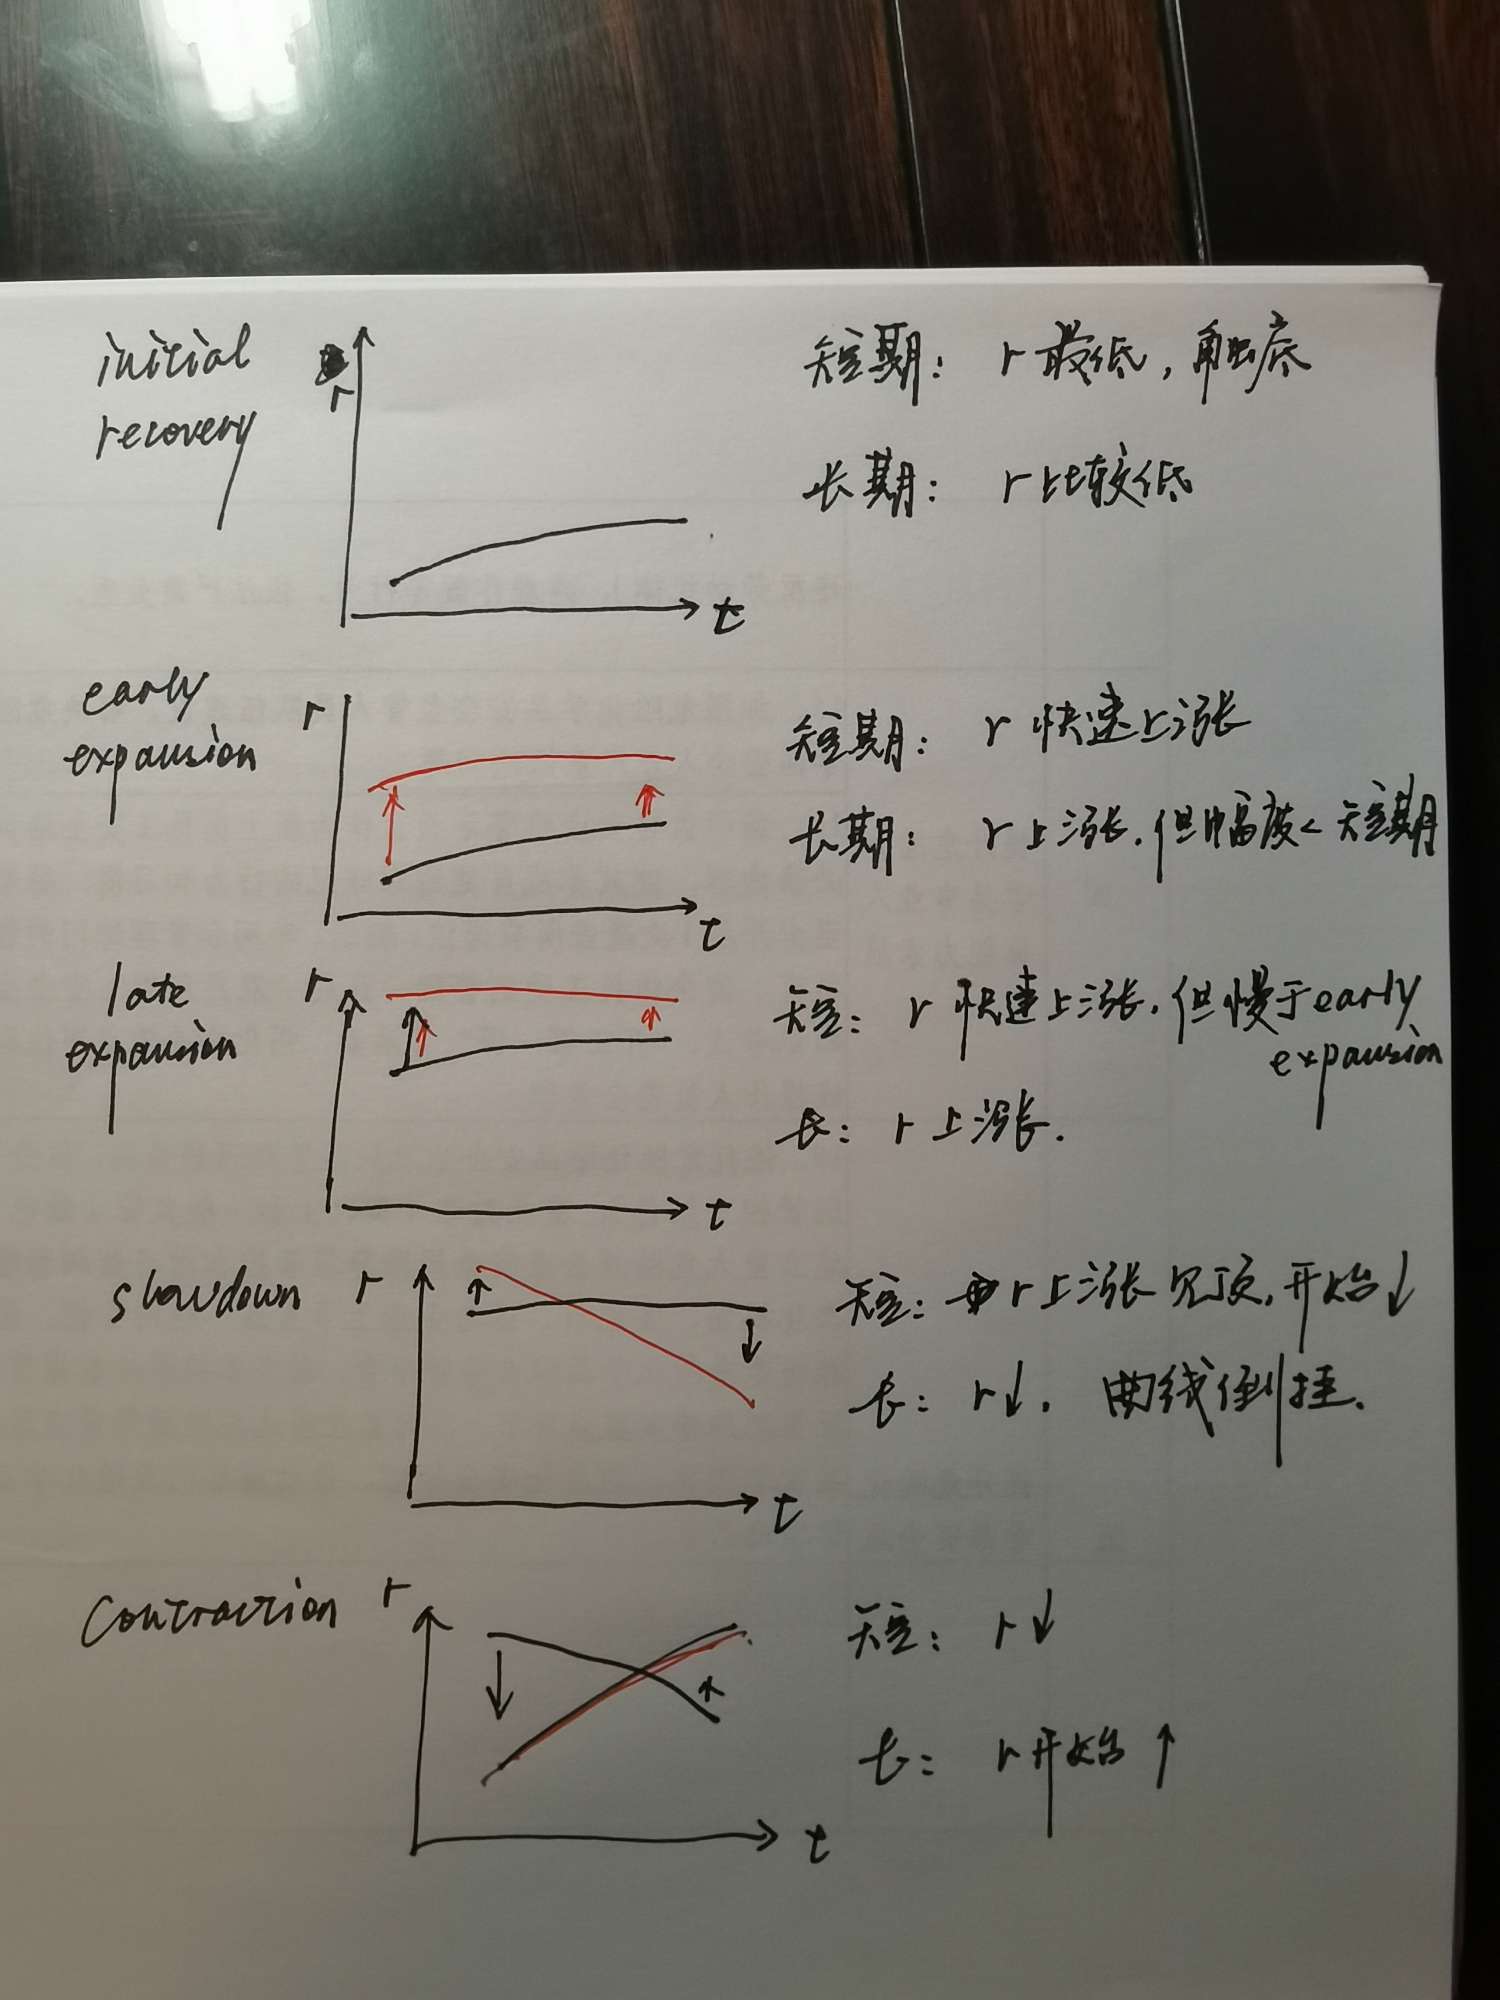 initial
recovery
r
t
短期: r 最低, 触底
长期: r 比较低
early
expansion
r
t
短期: r 快速上涨
长期: r 上涨. 但幅度< 短期
late
expansion
r
t
短: r 快速上涨. 但慢于early
expansion
长: r 上涨.
slowdown
r
t
短: r 上涨见顶, 开始↓
长: r↓. 曲线倒挂.
contraction
r
t
短: r↓
长: r开始↑